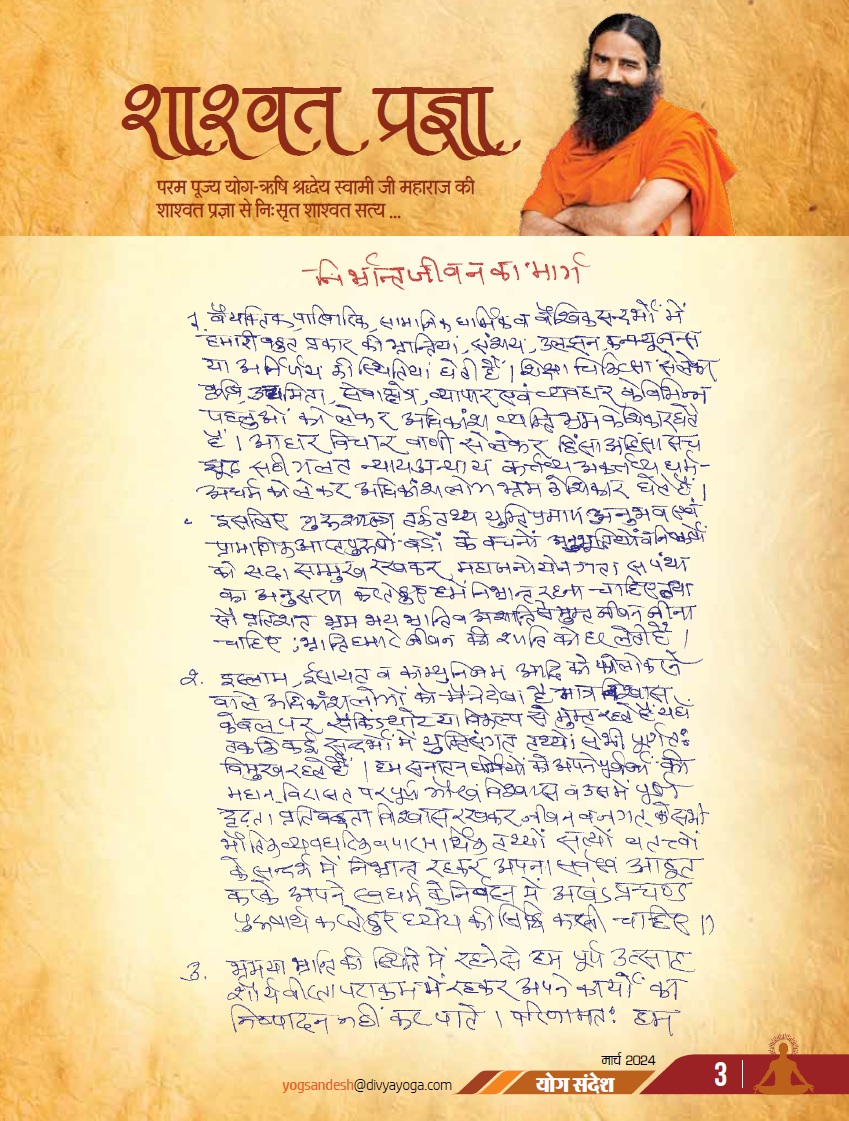 शाश्वत प्रज्ञा
परम पूज्य योग-ऋषि श्रद्धेय स्वामी जी महाराज की
शाश्वत प्रज्ञा से निःसृत शाश्वत सत्य ...
निर्भ्रान्त जीवन का मार्ग
1. वैयक्तिक, पारिवारिक, सामाजिक धार्मिक व वैश्विक सन्दर्भों में
हमारी बहुत प्रकार की भ्रान्तियां, संशय, उलझन, कन्फ्यूजन्स
या अनिर्णय की स्थितियां होती हैं। शिक्षा चिकित्सा से लेकर
कृषि, उद्यमिता, सेवाक्षेत्र, व्यापार एवं व्यवहार के विभिन्न
पहलुओं को लेकर अधिकांश व्यक्ति भ्रम के शिकार होते
हैं। आहार विचार वाणी से लेकर हिंसा अहिंसा सच
झूठ सही गलत न्याय अन्याय कर्त्तव्य अकर्त्तव्य धर्म-
अधर्म को लेकर अधिकांश लोग भ्रम के शिकार होते हैं।
इसलिए गुरु शास्त्र तर्क तथ्य युक्ति प्रमाण अनुभव एवं
प्रामाणिक आप्तपुरुषों बड़ों के वचनों अनुभूतियों व निष्कर्षों
को सदा सम्मुख रखकर, महाजनो येन गतः स पन्थाः
का अनुसरण करते हुए हमें निर्भ्रान्त रहना चाहिए तथा
सौ प्रतिशत भ्रम भय भ्रान्ति व अशान्ति से मुक्त जीवन जीना
चाहिए, भ्रान्ति हमारे जीवन की शान्ति को हर लेती है।
2. इस्लाम, ईसायत व काम्युनिजम आदि को फोलो करने
वाले अधिकांश लोगों को मैंने देखा है मात्र विश्वास
के बल पर सैकिंड थोट या विकल्प से मुक्त रहते हैं यहाँ
तक कि कई सन्दर्भों में युक्तिसंगत तथ्यों से भी पूर्णतः
विमुख रहते हैं। हम सनातन धर्मियों को अपने पूर्वजों की
महान् विरासत पर पूर्ण गौरव विश्वास व उसमें पूर्ण
दृढ़ता प्रतिबद्धता विश्वास रखकर जीवन व जगत् के सभी
भौतिक व्यवहारिक व पारमार्थिक तथ्यों सत्यों व तत्त्वों
के सन्दर्भ में निर्भ्रान्त रहकर अपना सर्वस्व आहुत
करके अपने स्वधर्म के निर्वहन में अखंड प्रचण्ड
पुरुषार्थ करते हुए ध्येय की सिद्धि करनी चाहिए।
3. भ्रम या भ्रान्ति की स्थिति में रहने से हम पूर्ण उत्साह
शौर्य वीरता पराक्रम में रहकर अपने कार्यों का
निष्पादन नहीं कर पाते। परिणामतः हम
मार्च 2024
yogsandesh@divyayoga.com
योग संदेश
3